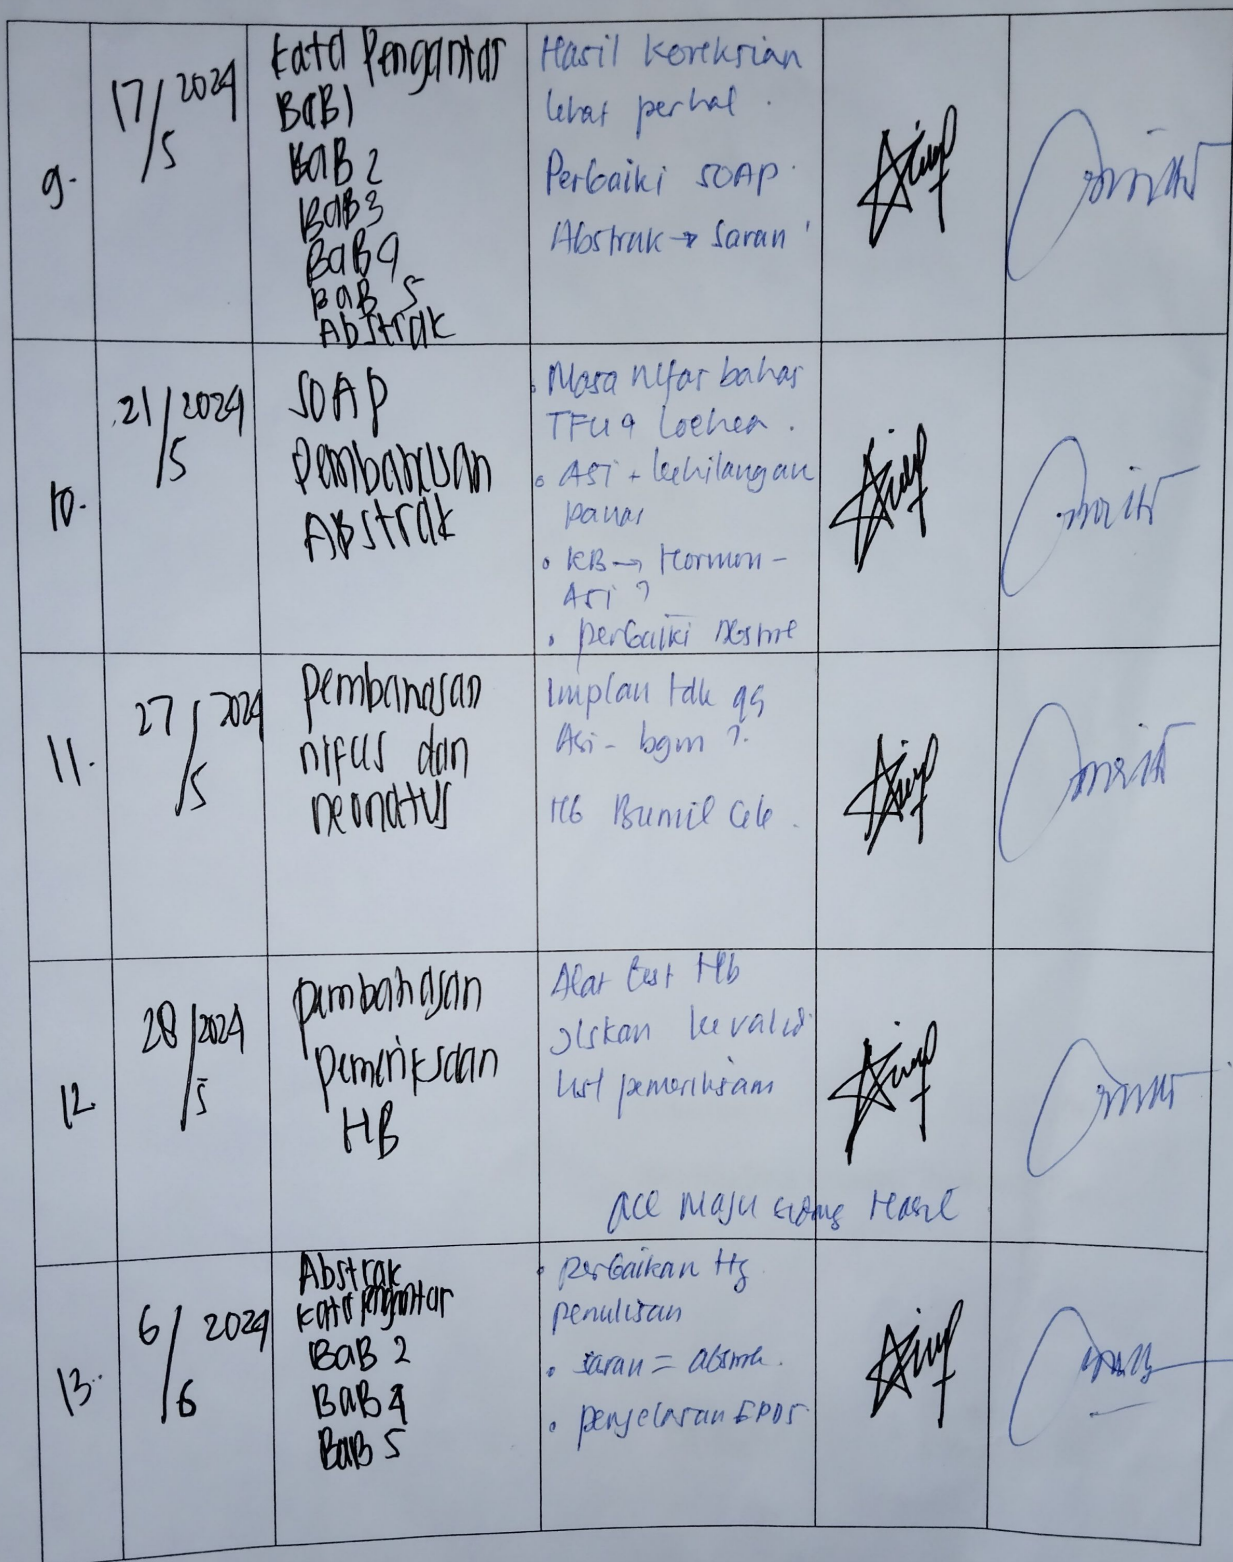 9.
17/5 2024
Kata Pengantar
BAB 1
BAB 2
BAB 3
BAB 4
BAB 5
Abstrak
Hasil koreksian
lihat perhal.
Perbaiki SOAP.
Abstrak → Saran
10.
21/5 2024
SOAP
Pembahasan
ABstrak
• Masa nifas bahas
TFU & Lochea.
• ASI + kehilangan
panas
• KB → Hormon -
ASI ?
• perbaiki
11.
27/5 2024
pembahasan
nifas dan
neonatus
Implan tdk gg
Asi - bgm ?
Hb Bumil Cek.
12.
28/5 2024
pembahasan
pemeriksaan
HB
Alat test Hb
valid
pemeriksaan
ACC Maju sidang Hasil
13.
6/6 2024
Abstrak
kata pengantar
BaB 2
BaB 4
BaB 5
• perbaikan
penulisan
• saran =
• penjelasan EPDS